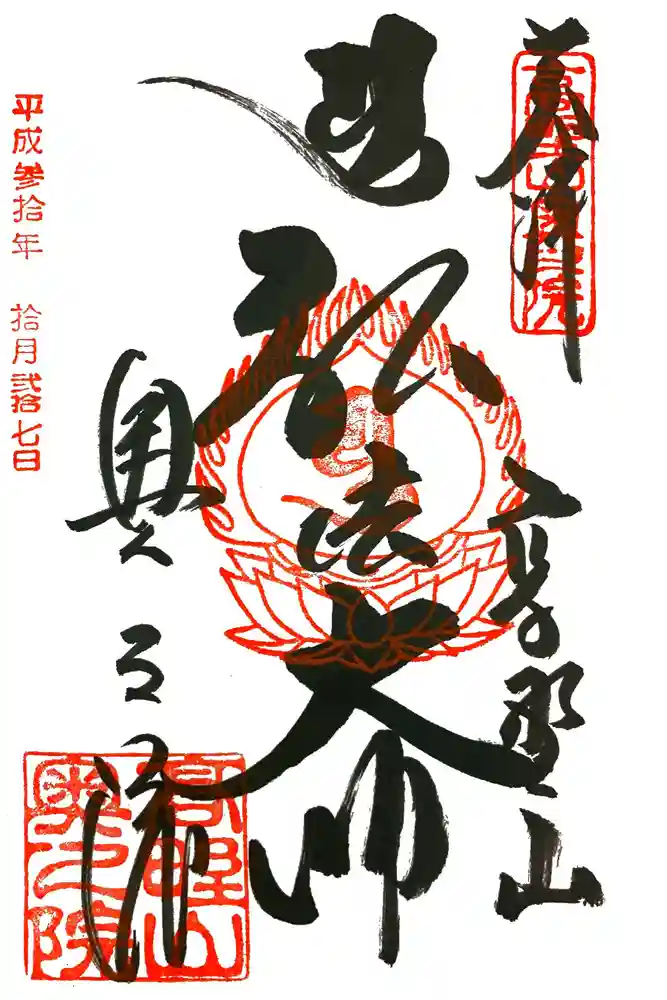 奉拝
高野山
弘法大師
奥之院
平成参拾年 拾月弐拾七日
高野山
奥之院